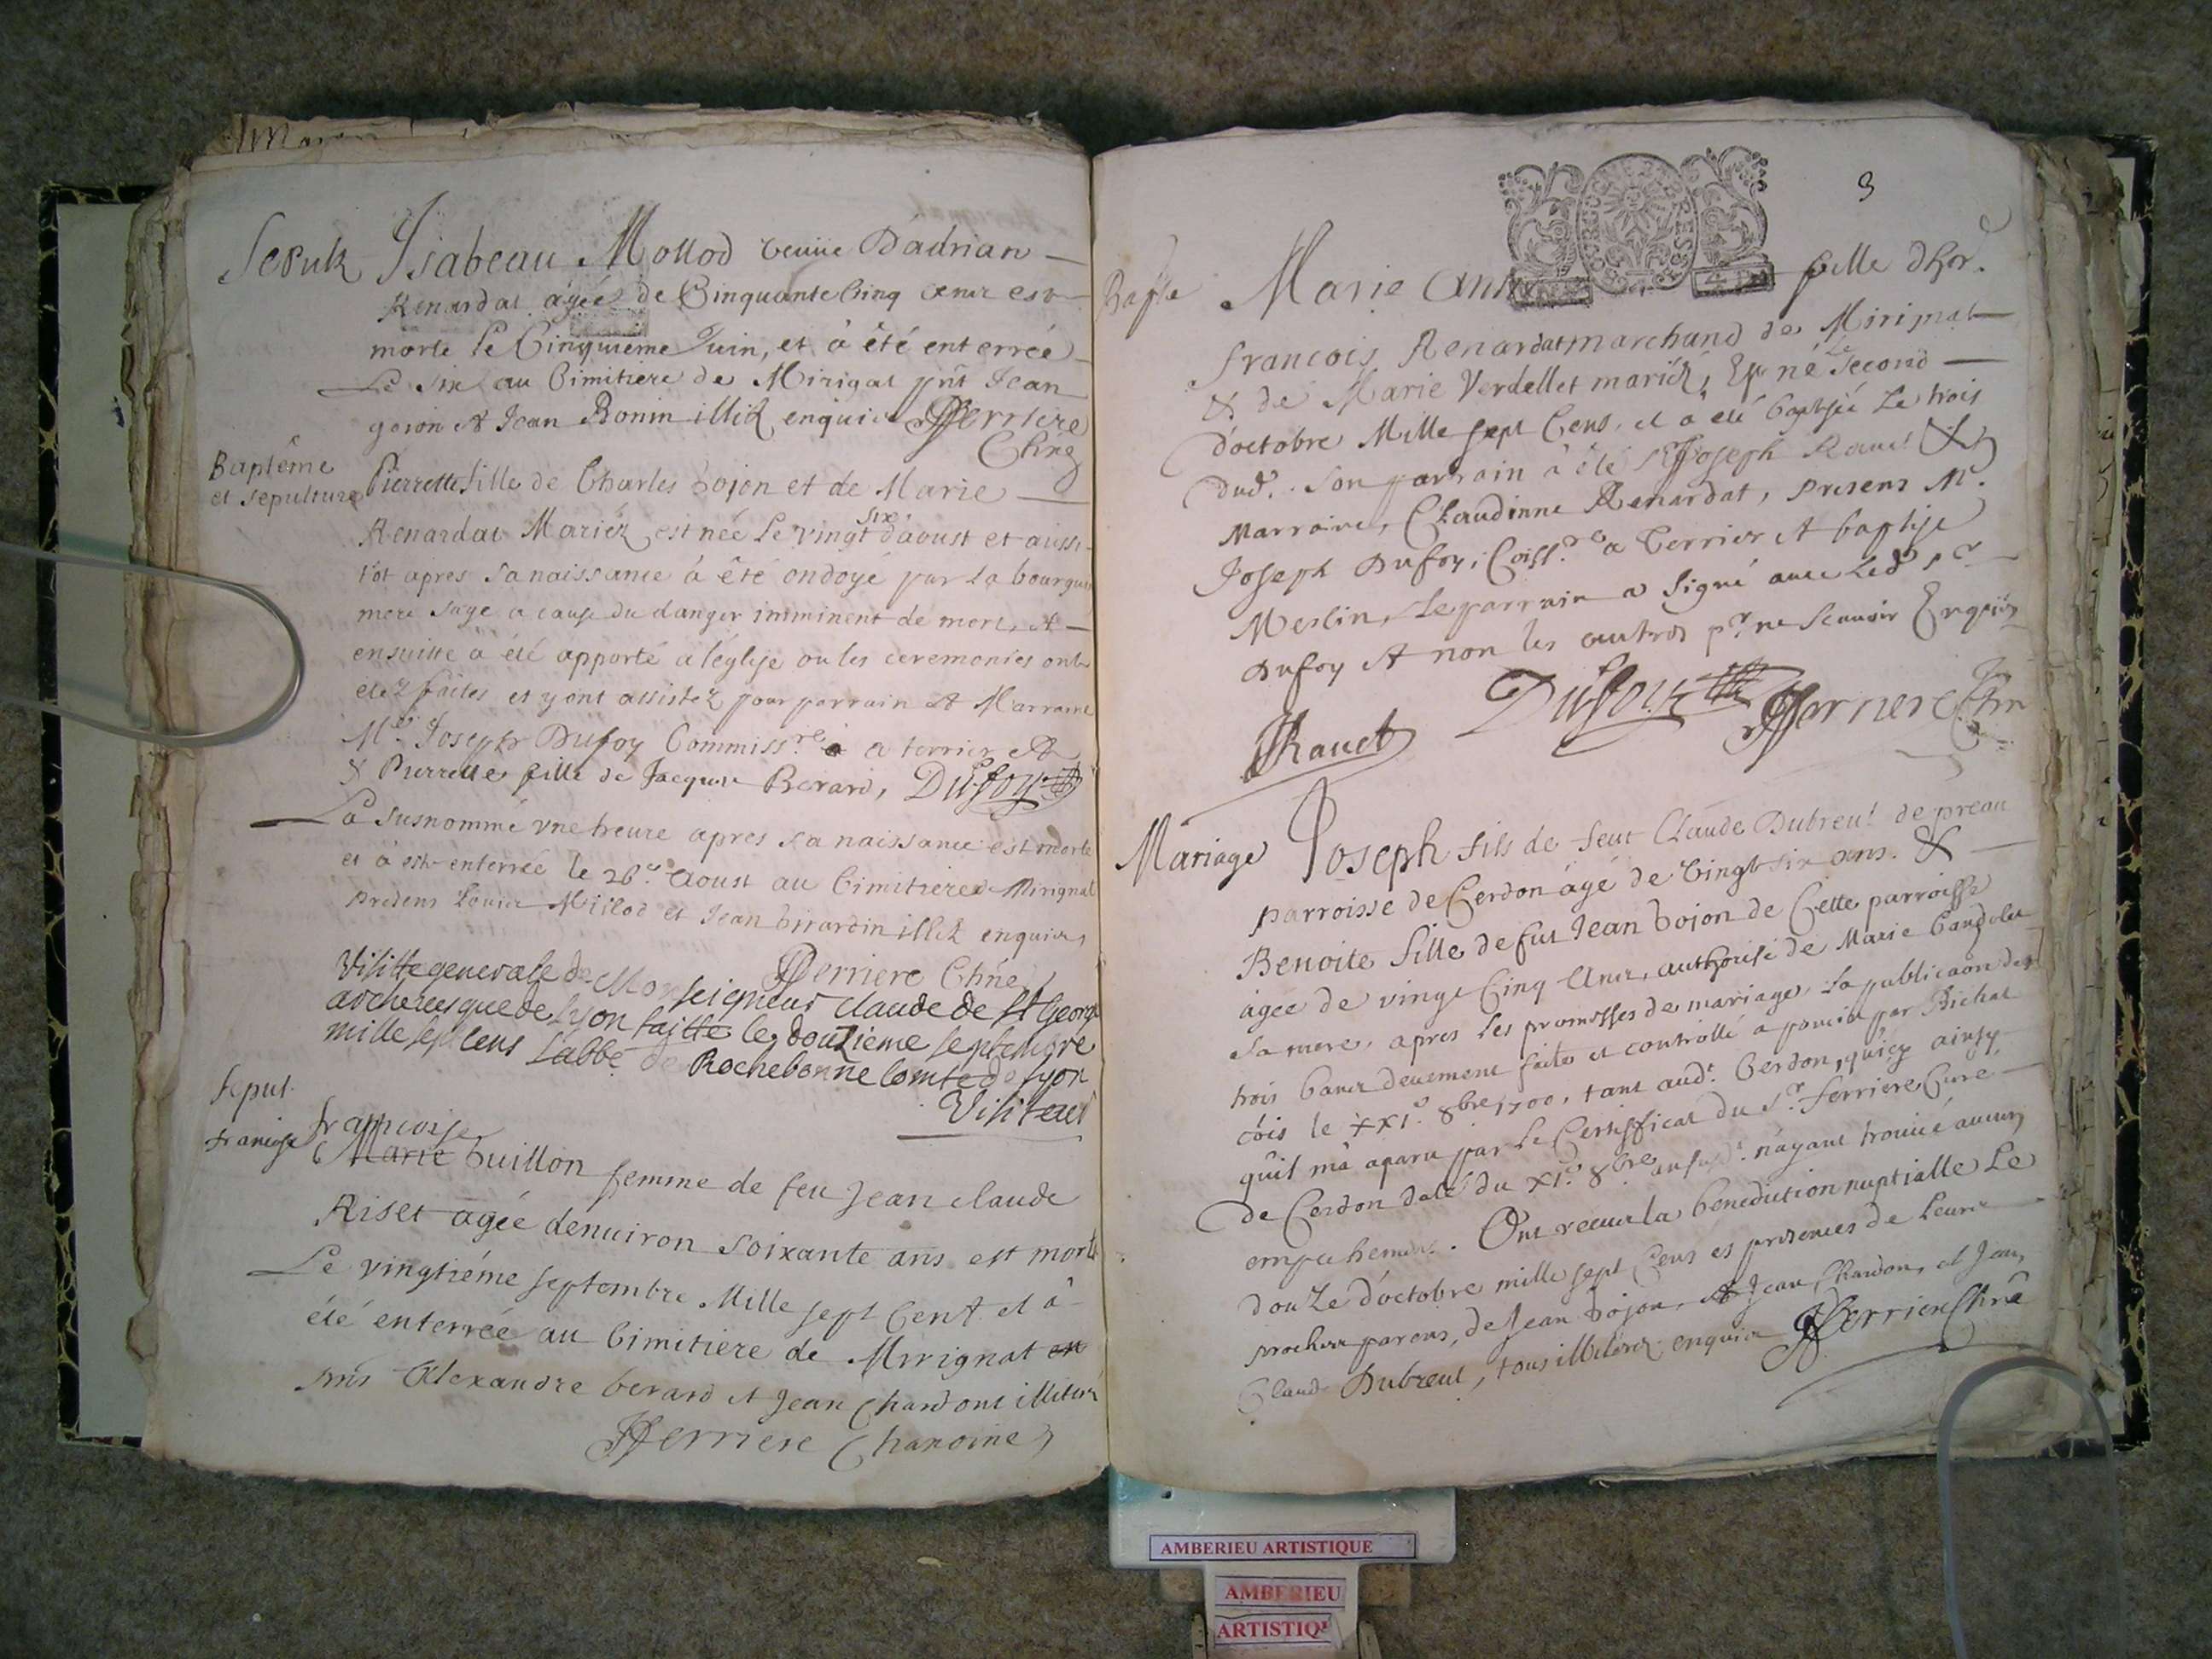 Isabeau Mollod veuüe D'adrian
Renardat agée de Cinquante Cinq ans est
morte le Cinquième Juin, et à été enterrée
Le Six au Cimitiere de Mirignat pnt Jean
goion & Jean Bonin enquis Fferriere
Chne
Baptême
et sepulture
Pierrette fille de Charles Bojon et de Marie
Renardat Mariéz est née le vingt six d'aoust et aussi
tôt apres sa naissance à êté ondoyé par la
mere sage a cause du danger imminent de mort, &
ensuitte à été apporté a l'église ou les ceremonies ont
etez faites et y ont assistez pour parrain & Marraine
Mr. Joseph Dufoy Commissre a terrier &
& Pierrette fille de Jacques Berard, Dufoy
La susnommé vne heure apres sa naissance est morte
et à esté enterrée le 26e aoust au Cimitiere de Mirignat
presens Louis Millod et Jean Girardin enquis
Fferriere Chne
Visitte generale de Monseigneur Claude de St George
archevesque de Lyon faitte le douzieme septembre
mille sept cens L'abbé de Rochebonne Comte de Lyon
Visiteur
Sepul.
françoise
françoise
Marie Guillon femme de feu Jean Claude
Riset agée denuiron soixante ans est morte
Le vingtiéme septembre Mille sept Cent et à
été enterrée au Cimitiere de Mirignat
pnts Alexandre berard & Jean Chardont
Fferriere Chanoine
3
Marie Anne fille d'hon.
francois Renardat marchand de Mirignat
& de Marie Verdellet mariéz, Est né Le Second
d'octobre Mille sept Cens, et a été baptisée Le trois
dud. Son parrain à été Sr Joseph Rauet &
Marraine, Claudinne Renardat, presens Mr.
Joseph Dufoy, Coissre a Terrier & baptise
Merlin, Le parrain a signé avec Led. Sr
Dufoy & non les autres pr. ne scauoir Enquis
JRauet Dufoy Fferriere Chn
Mariage
Joseph fils de feut Claude Dubreul de preau
parroisse de Cerdon âgé de vingt six ans. &
Benoite fille de fut Jean Bojon de Cette parroisse
agée de vingt Cinq Ans, authorisé de Marie
sa mere, apres les promesses de mariage La publicaôn des
trois bans deuement faite et controllé a poncin par Bichat
le XXIe 8bre 1700, tant aud. Cerdon, qu'icy ainsy
qu'il m'a aparu par le Certifficat du Sr. ferriere Curé
de Cerdon daté du XIe 8bre n'ayant trouué aucun
empechement. Ont receu la benediction nuptialle Le
douze d'octobre mille sept Cens es presences de leurs
prochess parens, de Jean Bojon, & Jean Chardon, et Jean
Claude Dubreul, tous enquis Fferriere Chne
AMBERIEU ARTISTIQUE
AMBERIEU
ARTISTIQ